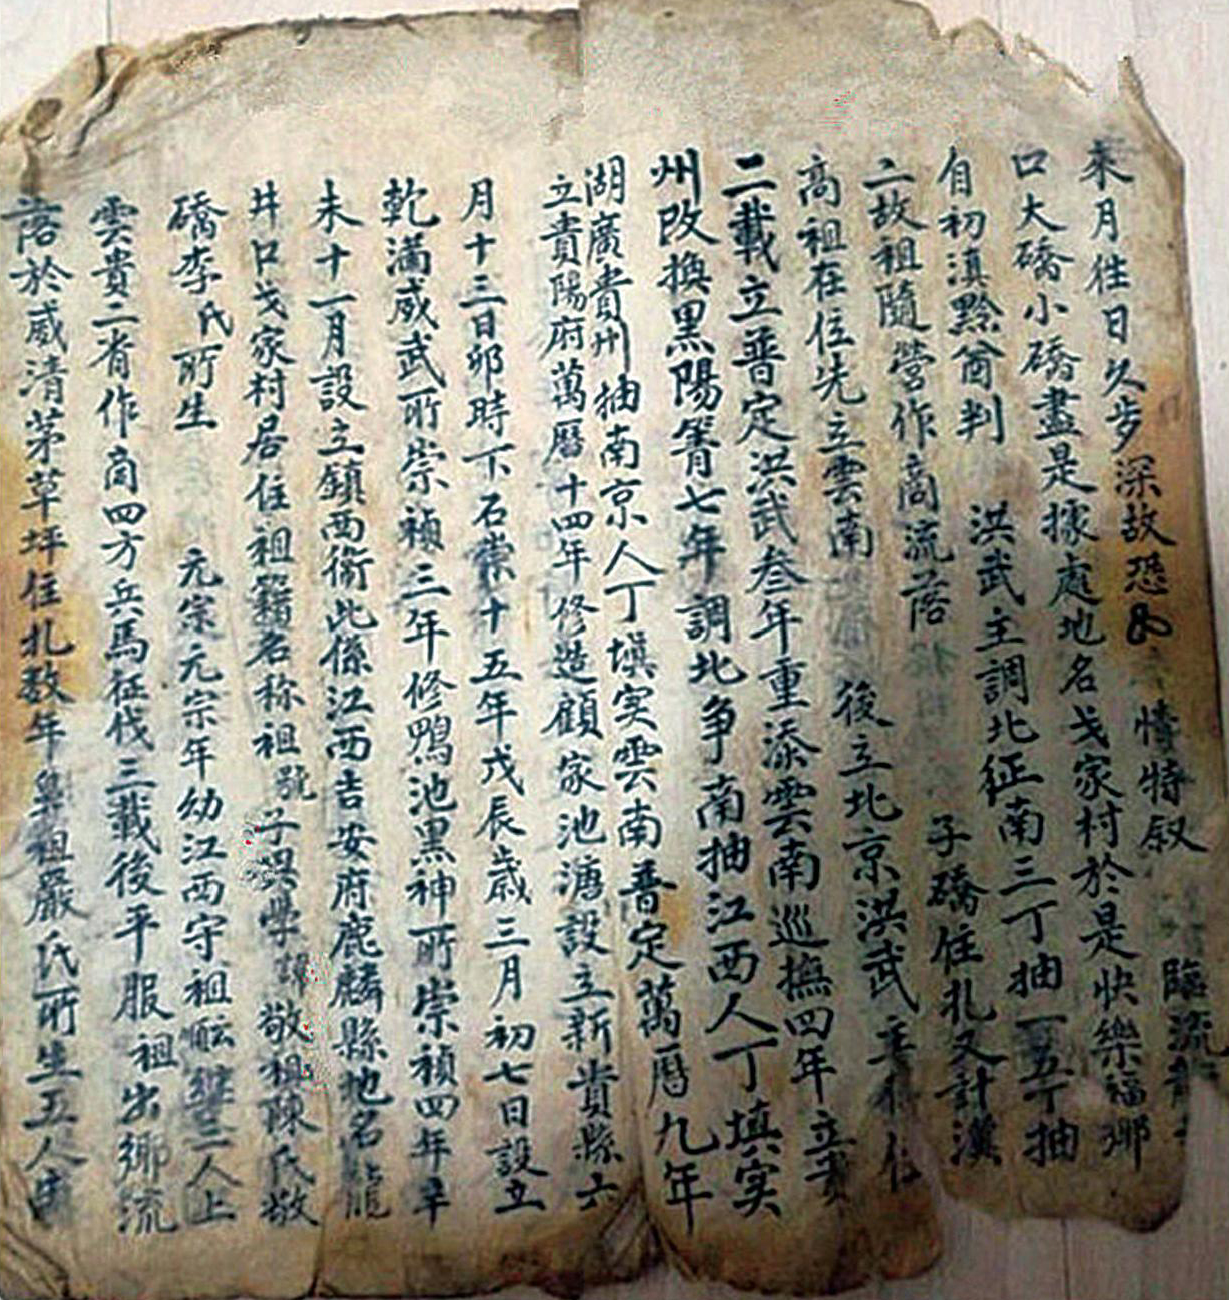 來月往日久步深故恐 情特叙 臨流
口大礄小礄盡是據處地名戈家村於是快樂福鄉
自初滇黔尚判 洪武主調北征南三丁抽一五丁抽
二故祖隨營作商流落 子礄住扎又計漢
高祖在位先立雲南 後立北京洪武 位
二載立普定洪武叁年重添雲南巡撫四年立貴
州改換黑陽箐七年調北争南抽江西人丁填实
湖廣貴州抽南京人丁填实雲南普定萬曆九年
立貴陽府萬曆十四年修造顧家池溏設立新貴縣六
月十三日卯時下石崇十五年戊辰歲三月初七日設立
乾滿威武所崇禎三年修鴨池黑神所崇禎四年辛
未十一月設立鎮西衛此係江西吉安府鹿麟縣地名龍
井口戈家村居住祖籍名称祖號子興學 敬祖陳氏敬
礄李氏所生 元宗元宗年幼江西守祖 二人上
雲貴二省作商四方兵馬征伐三載後平服祖出鄉流
落於威清茅草坪住扎数年 祖嚴氏所生五人